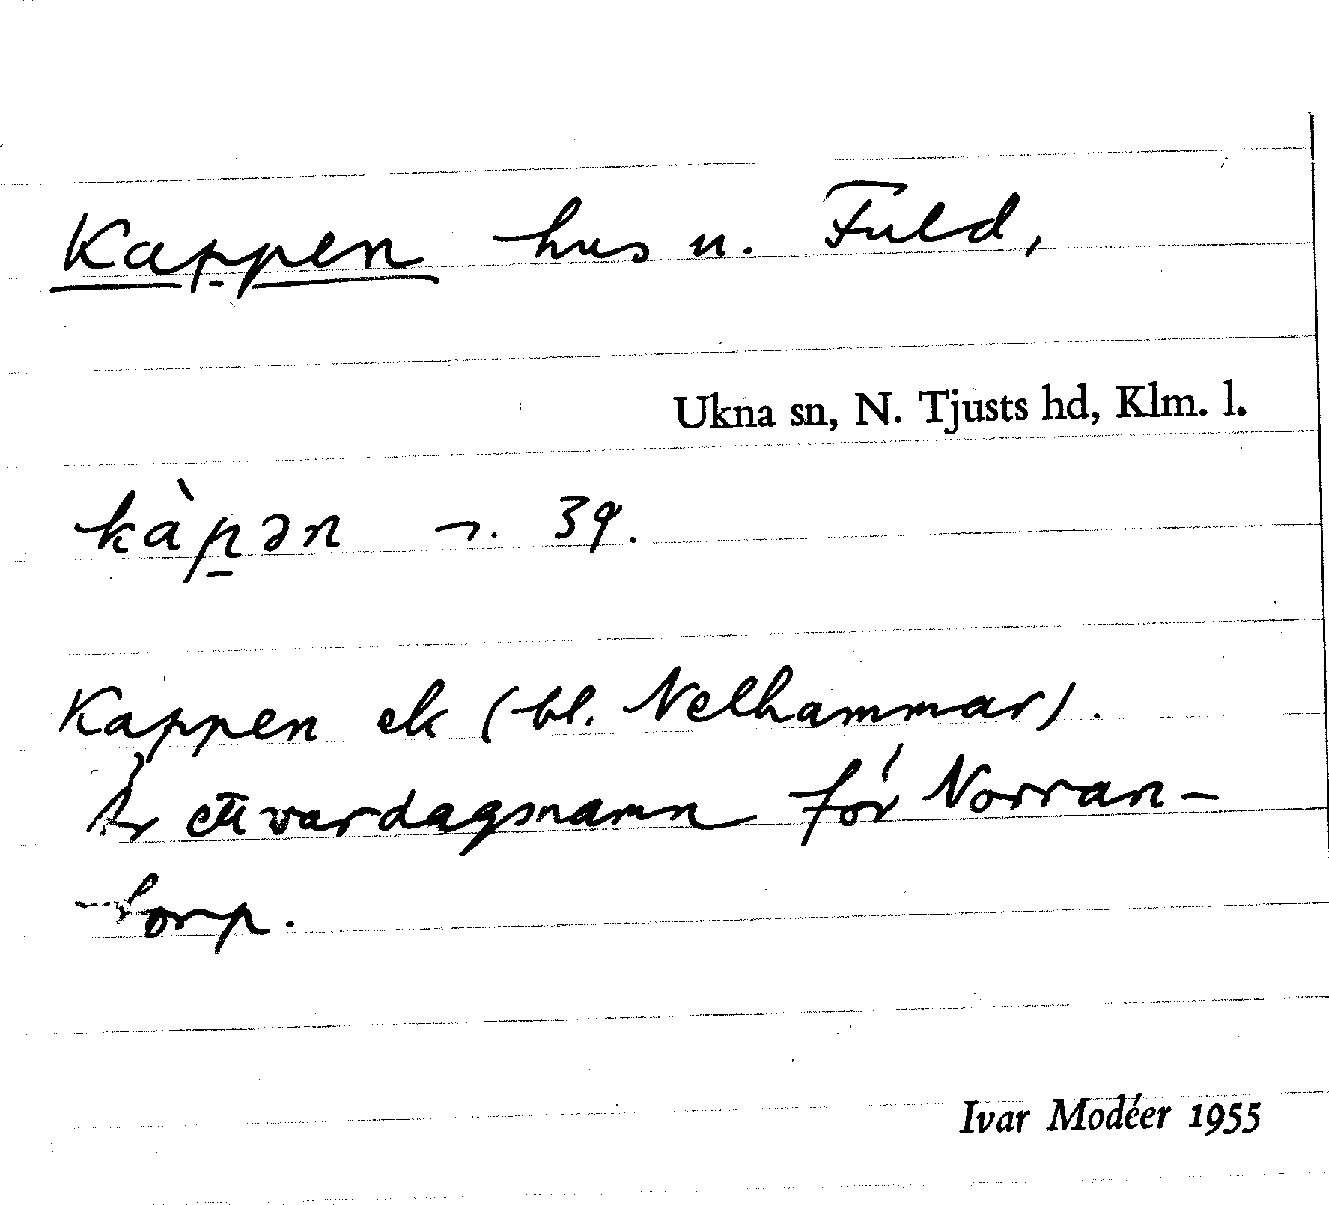 Kappen hus u. Fuld,
Ukna sn, N. Tjusts hd, Klm. l.
kàp̱ən 39.
Kappen ek (bl. Nelhammar).
Är ett vardagsnamn för Norran-
torp.
Ivar Modéer 1955